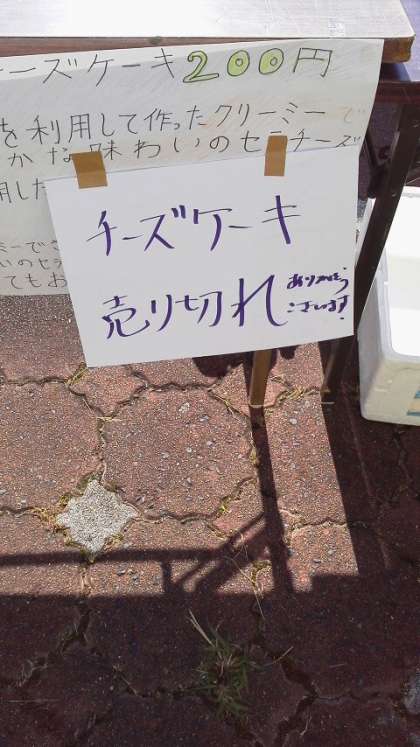 チーズケーキ200円
を利用して作ったクリーミーで
かな味わいのセミチーズ
用した
チーズケーキ
売り切れ
ありがとう
ございます!
ミーでさ
いのセミ
てもお